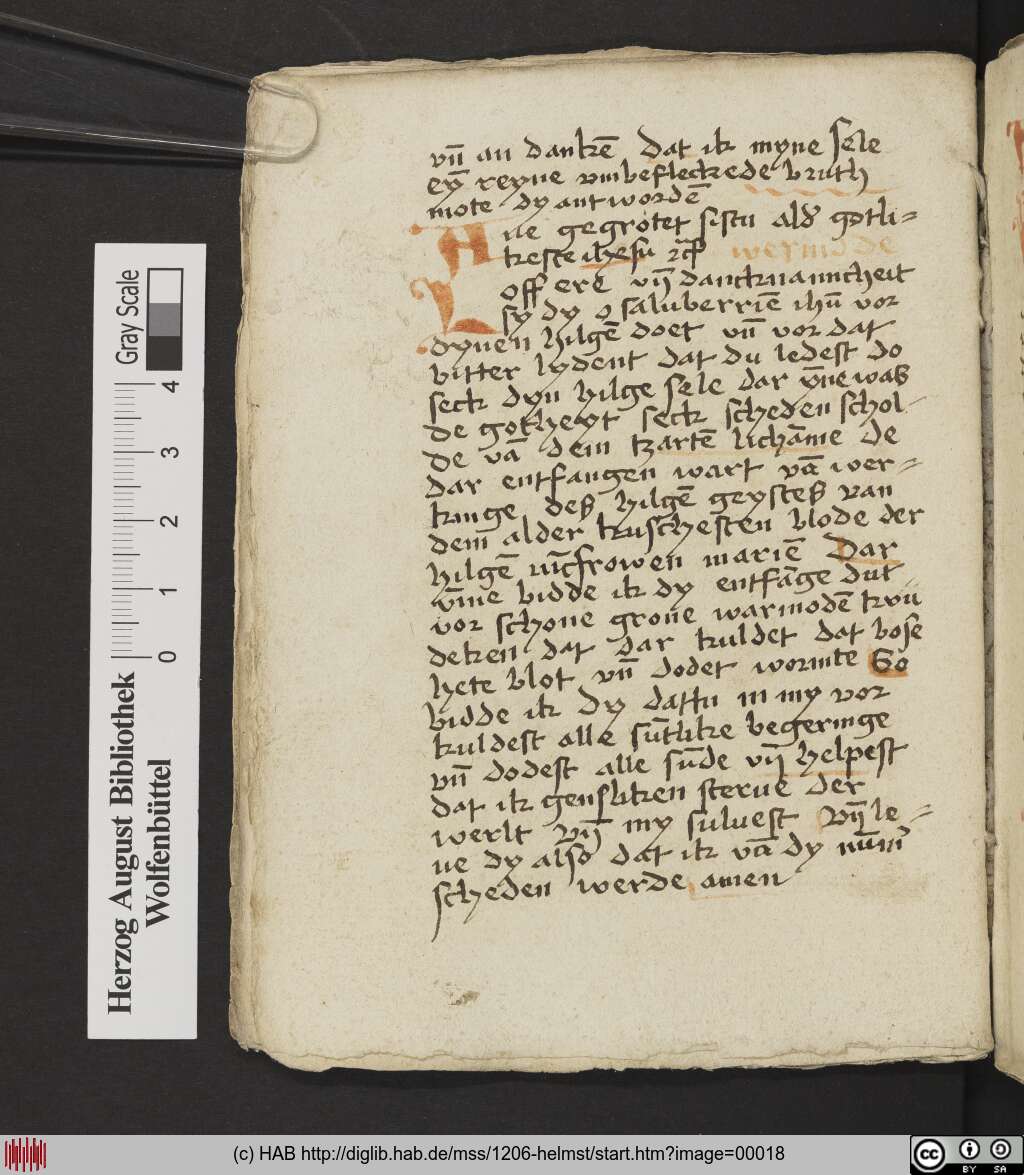 vn̄ an dankē Dat ik myne sele
eȳ reyne vmbefleckede bruth
mote dy antwordē
Aue gegrotet sistu alď gotli-
keste ihesu rcꝭ wermode
Loff ere vn̄ dancknamicheit
sy dy o saluberriē ihū vor
dynen hilgē doet vn̄ vor dat
bitter lydent dat du ledest do
seck dyn hilge sele dar ȳne was
de gotheyt seck scheden schol-
de vā dem tzartē lichāme de
dar entfangen wart vā wer-
kinge des hilgē geystes van
dem alder kuschesten blode der
hilgē iūcfrowen mariē Dar
v̄me bidde ik dy entfāge dut
vor schone grone warmodē krŭ
deken dat dar kuldet dat bose
hete blot vn̄ dodet wormte So
bidde ik dy dattu in my vor
kuldest alle sūtlike begeringe
vn̄ dodest alle sūde vn̄ helpest
dat ik gensliken sterue der
werlt vn̄ my suluest vn̄ le-
ue dy also dat ik vā dy nūm̄
scheden werde amen
Herzog August Bibliothek
Wolfenbüttel
Gray Scale
0 1 2 3 4
(c) HAB http://diglib.hab.de/mss/1206-helmst/start.htm?image=00018
cc BY SA